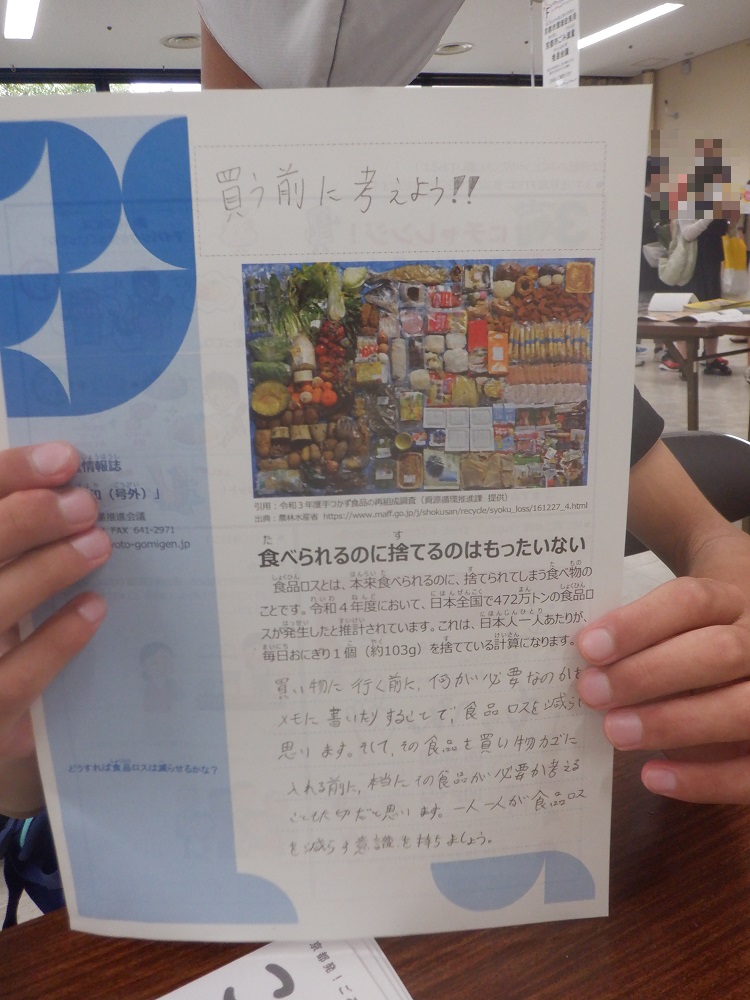 買う前に考えよう!!
引用：令和３年度手つかず食品の再組成調査（資源循環推進課 提供）
出典：農林水産省 https://www.maff.go.jp/j/shokusan/recycle/syoku_loss/161227_4.html
食べられるのに捨てるのはもったいない
食品ロスとは、本来食べられるのに、捨てられてしまう食べ物の
ことです。令和４年度において、日本全国で472万トンの食品ロ
スが発生したと推計されています。これは、日本人一人あたりが、
毎日おにぎり１個（約103g）を捨てている計算になります。
買い物に行く前に、何が必要なのかを
メモに書いたりすることで、食品ロスを減らし
思います。そして、その食品を買い物カゴに
入れる前に、本当にその食品が必要か考える
ことも大切だと思います。一人一人が食品ロス
を減らす意識を持ちましょう。
情報誌
（号外）」
推進会議
FAX 641-2971
yoto-gomigen.jp
どうすれば食品ロスは減らせるかな？
京都発！